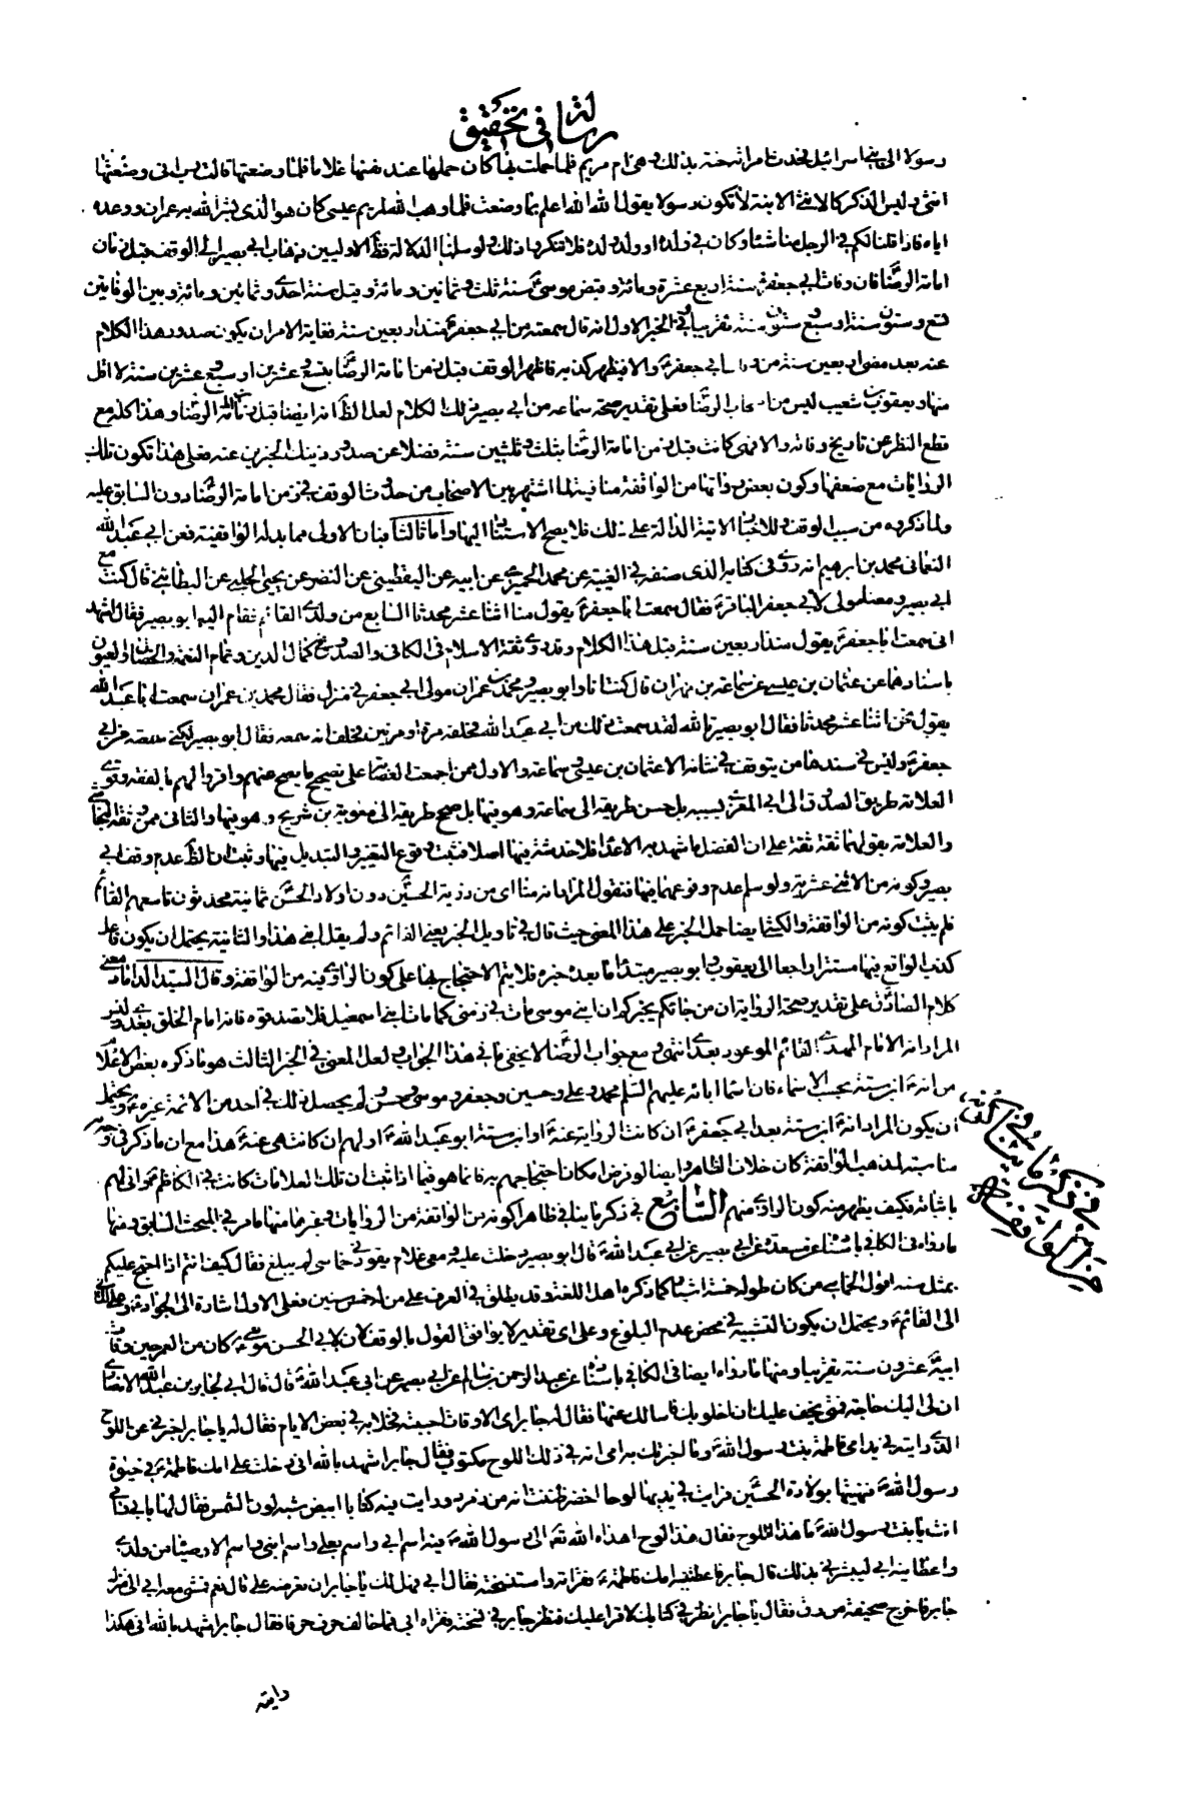 رسالة في تحقيق
رسولا الى بني اسرائيل فحدث امراته حنة بذلك وهي ام مريم فلما حملت بها كان حملها عند نفسها غلاما فلما وضعتها قالت رب اني وضعتها
انثى وليس الذكر كالانثى الابنة لا تكون رسولا يقول الله الله اعلم بما وضعت فلما وهب الله لمريم عيسى كان هو الذي بشر الله به عمران ووعده
اياه فاذا قلنا لكم في الرجل منا شيئا وكان في ولده او ولد ولده فلا تنكروا ذلك ولو سلمنا الدلالة في الاوليين ذهاب ابي بصير الى الوقف قبل زمان
امامة الرضا فان وفات ابي جعفر سنة اربع عشرة ومائة وقبض موسى سنة ثلث وثمانين ومائة وقيل سنة احدى وثمانين ومائة وبين الوفاتين
تسع وستون سنة او سبع وستون سنة تقريبا وفي الخبر الاول انه قال سمعته من ابي جعفر منذ اربعين سنة فغاية الامر ان يكون صدور هذا الكلام
عنه بعد مضي اربعين سنة من ابي جعفر والا فيظهر كذبه فاظهر الوقف قبل زمن امامة الرضا بتسع وعشرين او سبع وعشرين سنة لا اقل
منها ويعقوب بن شعيب ليس من اصحاب الرضا فعلى تقدير صحة سماعه من ابي بصير ذلك الكلام لعل الظ انه ايضا قبل امامة الرضا وهذا كله مع
قطع النظر عن تاريخ وفاته والا فهي كانت قبل زمن امامة الرضا بثلث وثلثين سنة فضلا عن صدور ذينك الخبرين عنه فعلى هذا تكون تلك
الروايات مع ضعفها وكون بعض رواتها من الواقفة منافية لما اشتهر بين الاصحاب من حدوث الوقف في زمن امامة الرضا دون السابق عليه
ولما ذكروه من سبب الوقف وللاخبار الاتية الدالة على ذلك فلا يصح الاستناد اليها واما ثالثا فبان الاولى مما يدل الواقفية فعن ابي عبد الله
النعماني محمد بن ابرهيم انه روى في كتابه الذي صنفه في الغيبة عن محمد الحميري عن ابيه عن اليقطيني عن النضر عن يحيى الحلبي عن البطائني قال كنت مع
ابي بصير ومعنا مولى لابي جعفر الباقر فقال سمعت ابا جعفر يقول منا اثنا عشر محدثا السابع من ولدي القائم فقام اليه ابو بصير فقال اشهد
اني سمعت ابا جعفر يقول منذ اربعين سنة مثل هذا الكلام وقد روى ثقة الاسلام في الكافي والصدوق في كمال الدين وتمام النعمة والخصال والعيون
باسنادهما عن عثمان بن عيسى عن سماعة بن مهران قال كنت انا وابو بصير ومحمد بن عمران مولى ابي جعفر في منزل فقال محمد بن عمران سمعت ابا عبد الله
يقول نحن اثنا عشر محدثا فقال ابو بصير تالله لقد سمعت ذلك من ابي عبد الله فحلفه مرة او مرتين فحلف انه سمعه فقال ابو بصير لكني سمعته من ابي
جعفر وليس في سندها من يتوقف في شانه الا عثمان بن عيسى وسماعة والاول ممن اجمعت العصابة على تصحيح ما يصح عنهم واقروا لهم بالفقه وقوى
العلامة طريق الصدوق الى ابي المغرا بسببه بل حسن طريقه الى سماعة وهو فيها بل صحح طريقه الى معوية بن شريح وهو فيها والثاني ممن وثقه النجاشي
والعلامة بقولهما ثقة ثقة على ان الفضل ما شهد به الاعداء فلا خدشة فيها اصلا فثبت وقوع التغيير والتبديل فيها وثبت ان الظ عدم وقف ابي
بصير وكونه من الاثني عشرية ولو سلم عدم وقوعهما فيها فنقول المراد انه منا اي من ذرية الحسين دون اولاد الحسن ثمانية محدثون تاسعهم القائم
فلم يثبت كونه من الواقفة والكشي ايضا حمل الخبر على هذا المعنى حيث قال في تاويل الخبر يعني القائم ولم يقل ابني هذا والثانية يحتمل ان يكون فاعل
كذب الواقع فيها مستترا راجعا الى يعقوب وابو بصير مبتدا ما بعده خبره فلا يتم الاحتجاج بها على كون الراوي فيه من الواقفة وقال السيد الداماد معنى
كلام الصادق على تقدير صحة الرواية ان من جائكم يخبركم ان ابني موسى مات في زمني كما مات ابني اسمعيل فلا تصدقوه فانه امام الخلق بعدي وليس
المراد انه الامام المهدي القائم الموعود بعد انتهى ومع جواب الرضا لا يخفى ما في هذا الجواب ولعل المعنى في الخبر الثالث هو ما ذكره بعض الاعلام
من انه ابن ستة بحسب الاسماء فان اسماء ابائه عليهم السلم محمد وعلي وحسين وجعفر وموسى وحسن ولم يحصل ذلك في احد من الائمة غيره ويحتمل
ان يكون المراد انه ابن ستة بعد ابي جعفر ان كانت الرواية عنه او ابن ستة ابو عبد الله اولهم ان كانت هي عنه هذا مع ان ما ذكر في وجه
مناسبته لمذهب الواقفة كان خلاف الظاهر وايضا لو فرض امكان احتجاجهم به فانما هو فيما اذا ثبت ان تلك العلامات كانت في الكاظم وانى لهم
باثباته فكيف يظهر منه كون الراوي منهم التاسع في ذكر ما ينافي ظاهرا كونه من الواقفة من الروايات وغيرها منها ما مر في المبحث السابق ومنها
ما رواه في الكافي باسناده عن عدة عن ابي بصير عن ابي عبد الله قال ابو بصير دخلت عليه ومعي غلام يقودني خماسي لم يبلغ فقال كيف انتم اذا احتج عليكم
بمثل سنه اقول الخماسي من كان طوله خمسة اشبار كما ذكره اهل اللغة وقد يطلق في العرف على من له خمس سنين فعلى الاول اشارة الى الجواد وعلى الثاني
الى القائم ويحتمل ان يكون التشبيه في محض عدم البلوغ وعلى اي تقدير لا يوافق القول بالوقف لان لابي الحسن موسى كان من العمر حين وفات
ابيه عشرون سنة تقريبا ومنها ما رواه ايضا في الكافي باسناده عن عبد الرحمن بن سالم عن ابي بصير عن ابي عبد الله قال قال ابي لجابر بن عبد الله الانصاري
ان لي اليك حاجة فمتى يخف عليك ان اخلو بك فاسالك عنها فقال له جابر اي الاوقات احببته فخلا به في بعض الايام فقال له يا جابر اخبرني عن اللوح
الذي رايته في يد امي فاطمة بنت رسول الله وما اخبرتك به امي انه في ذلك اللوح مكتوب فقال جابر اشهد بالله اني دخلت على امك فاطمة في حيوة
رسول الله فهنيتها بولادة الحسين فرايت في يديها لوحا اخضر ظننت انه من زمرد ورايت فيه كتابا ابيض شبه لون الشمس فقال لها بابي وامي
انت يا بنت رسول الله ما هذا اللوح فقال هذا لوح اهداه الله تعالى الى رسول الله فيه اسم ابي واسم بعلي واسم ابني واسم الاوصياء من ولدي
واعطانيه ابي ليبشرني بذلك قال جابر فاعطتنيه امك فاطمة فقراته واستنسخته فقال ابي فهل لك يا جابر ان تعرضه علي قال نعم فمشى معه ابي الى منزل
جابر فاخرج صحيفة من رق فقال يا جابر انظر في كتابك لاقرا عليك فنظر جابر في نسخته فقراه ابي فما خالف حرف حرفا فقال جابر اشهد بالله اني هكذا
رايته
في ذكر ما ينافي كونه
من الواقفة